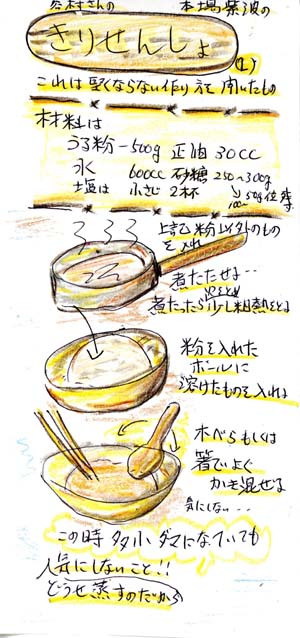 本場紫波の
きりせんしょ
(1)
これは堅くならない作り方を聞いたもの
材料は
うる粉ー500g 正油 30cc
水 600cc 砂糖 250~300g
塩は 小さじ 2杯
上記粉以外のもの
を入れ
煮たたせよ・・
煮たったら少し粗熱をとる
粉を入れた
ボールに
溶けたものを入れよ
木べらもしくは
箸でよく
かき混ぜる
気にしない・・
この時 多少ダマになっていても
人気にしないこと!!
どうせ蒸すのだから